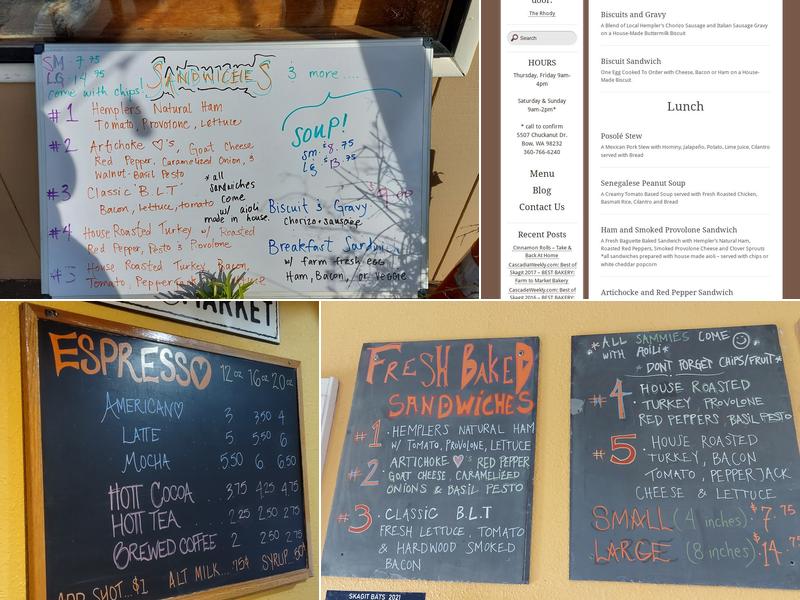 SM 7.75
LG 14.75
come with chips!
SANDWICHES
& more....
#1 Hemplers Natural Ham
Tomato, Provolone, Lettuce
#2 Artichoke ♡'s, Goat Cheese
Red Pepper, Caramelized Onion, &
Walnut Basil Pesto
#3 Classic B.L.T
Bacon, lettuce, tomato
* all
Sandwiches
come
w/ aioli
made in house.
#4 House Roasted Turkey w/ Roasted
Red Pepper, Pesto & Provolone
House Roasted Turkey, Bacon,
Tomato, Pepperjack
SOUP!
Sm. $8.75
LG $13.75
Biscuit & Gravy
Chorizo + Sausage
Breakfast Sandwich
w/ farm fresh egg
Ham, Bacon, or Veggie
door.
The Rhody
Search
HOURS
Thursday, Friday 9am-
4pm
Saturday & Sunday
9am-2pm*
* call to confirm
5507 Chuckanut Dr.
Bow, WA 98232
360-766-6240
Menu
Blog
Contact Us
Recent Posts
Cinnamon Rolls – Take &
Back At Home
CascadiaWeekly.com: Best of
Skagit 2017 – BEST BAKERY:
Farm to Market Bakery
CascadiaWeekly.com: Best of
Skagit 2016 – BEST BAKERY:
Biscuits and Gravy
A Blend of Local Hempler's Chorizo Sausage and Italian Sausage Gravy
on a House-Made Buttermilk Biscuit
Biscuit Sandwich
One Egg Cooked To Order with Cheese, Bacon or Ham on a House-
Made Biscuit
Lunch
Posolé Stew
A Mexican Pork Stew with Hominy, Jalapeño, Potato, Lime Juice, Cilantro
served with Bread
Senegalese Peanut Soup
A Creamy Tomato Based Soup served with Fresh Roasted Chicken,
Basmati Rice, Cilantro and Bread
Ham and Smoked Provolone Sandwich
A Fresh Baguette Baked Sandwich with Hempler's Natural Ham,
Roasted Red Peppers, Smoked Provolone Cheese and Clover Sprouts
*all sandwiches prepared with house made aioli – served with chips or
white cheddar popcorn
Artichocke and Red Pepper Sandwich
MARKET
ESPRESSO 12oz 16oz 20oz
AMERICANO 3 3.50 4
LATTE 5 5.50 6
MOCHA 5.50 6 6.50
HOTT COCOA ... 3.75 4.25 4.75
HOTT TEA ... 2.25 2.50 2.75
BREWED COFFEE 2 2.50 2.75
ADD SHOT...$1 ALT MILK....75¢ SYRUP .50¢
FRESH BAKED
SANDWICHES
#1 · HEMPLERS NATURAL HAM
W/ TOMATO, PROVOLONE, LETTUCE
#2 · ARTICHOKE ♡'S RED PEPPER
GOAT CHEESE, CARAMELIZED
ONIONS & BASIL PESTO
#3 · CLASSIC B.L.T
FRESH LETTUCE, TOMATO
& HARDWOOD SMOKED
BACON
*ALL SAMMIES COME
WITH AOILI*
* DON'T FORGET CHIPS/FRUIT*
#4 · HOUSE ROASTED
TURKEY, PROVOLONE
RED PEPPERS BASIL PESTO
#5 · HOUSE ROASTED
TURKEY, BACON
TOMATO, PEPPERJACK
CHEESE & LETTUCE
SMALL (4 inches) $7.75
LARGE (8 inches) $14.75
SKAGIT BATS 2021